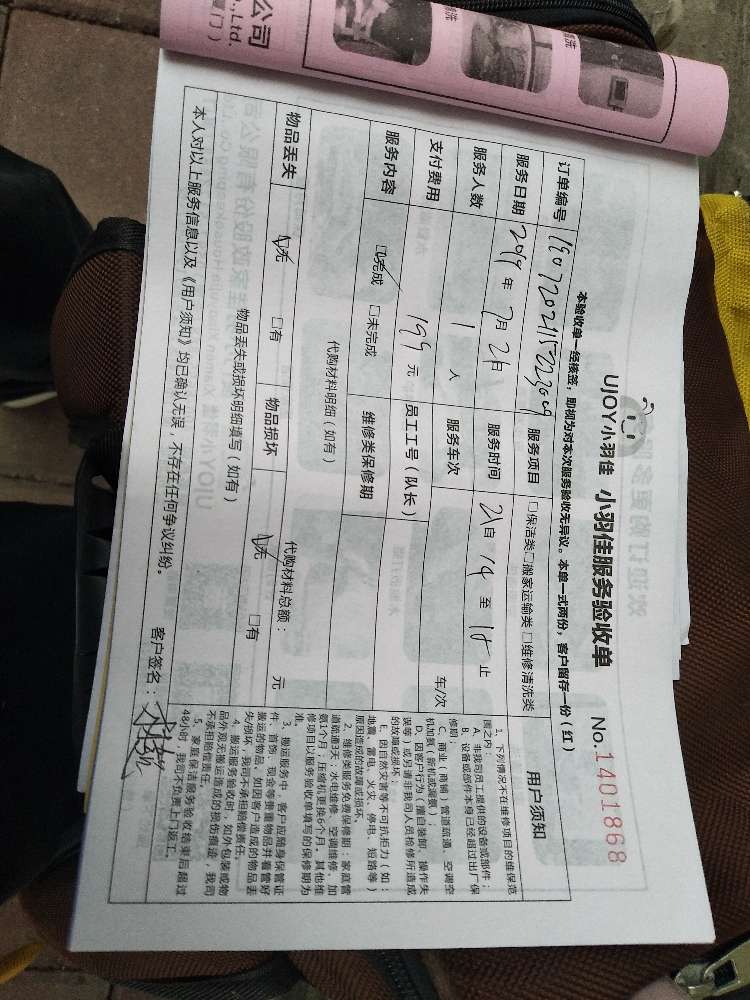 公司
., Ltd.
门）
UJOY小羽佳 小羽佳服务验收单 No.1401868
本验收单一经核签，即视为对本次服务验收无异议。本单一式两份，客户留存一份（红）
订单编号 服务项目 □保洁类□搬家运输类□维修清洗类
服务日期 2019年7月21日 服务时间 21自 14 至 18 止
服务人数 1 人 服务车次 车/次
支付费用 199 元 员工工号（队长）
服务内容 □完成 □未完成 维修类保修期
代购材料明细（如有） 代购材料总额： 元
物品丢失 □无 □有 物品损坏 □无 □有
物品丢失或损坏明细填写（如有）
本人对以上服务信息以及《用户须知》均已确认无误，不存在任何争议纠纷。 客户签名：
用户须知
1、下列情况不在维修项目的维保范
围之内：
A、非我司员工提供的设备或部件；
B、设备或部件本身已经超过出厂保
修期；
C、商业（商铺）管道疏通、空调空
机加氟（新机或漏氟）；
D、因客户行为（擅自装卸、操作失
误等）或另请非我司人员检修所造成
的故障或损坏。
E、因自然灾害等不可抗拒力（如：
地震、雷电、火灾、停电、短路等）
原因造成的故障或损坏。
2、维修类服务免费保修期：家庭管
道疏通3天；水电维修、空调维修、加
氨1个月；压缩机更换6个月，其他维
修项目以服务验收单填写的保修期为
准。
3、搬运服务中，客户应随身保管证
件、首饰、现金等贵重物品并看管好
搬运的物品，如因客户造成的物品丢
失/损坏，我司不承担赔偿责任。
4、搬运服务验收时，如外包装或物
品外观无搬运造成的损伤痕迹，我司
不承担赔偿责任。
5、家庭保洁服务验收结束后超过
48小时，我司不负责上门返工。